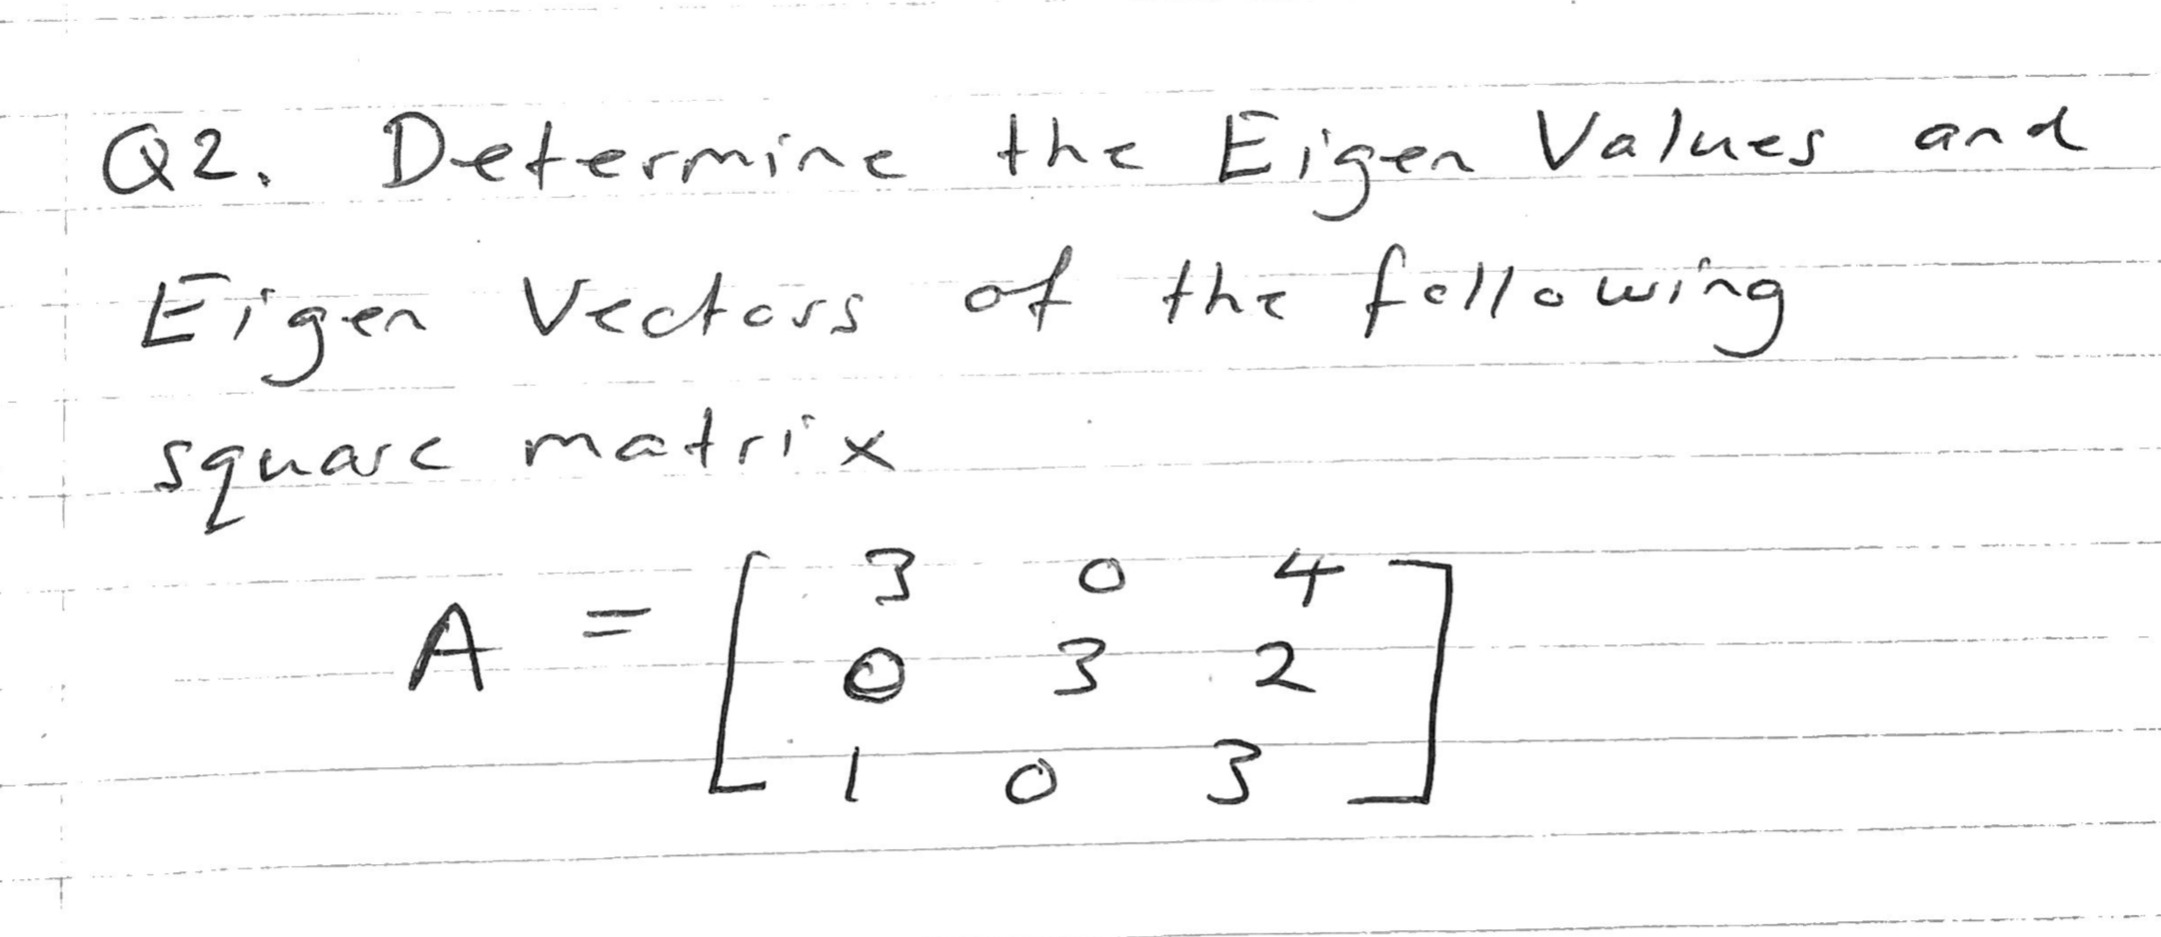 Q2. Determine the Eigen Values and
Eigen Vectors of the following
square matrix
A = [ 3 0 4
0 3 2
1 0 3 ]